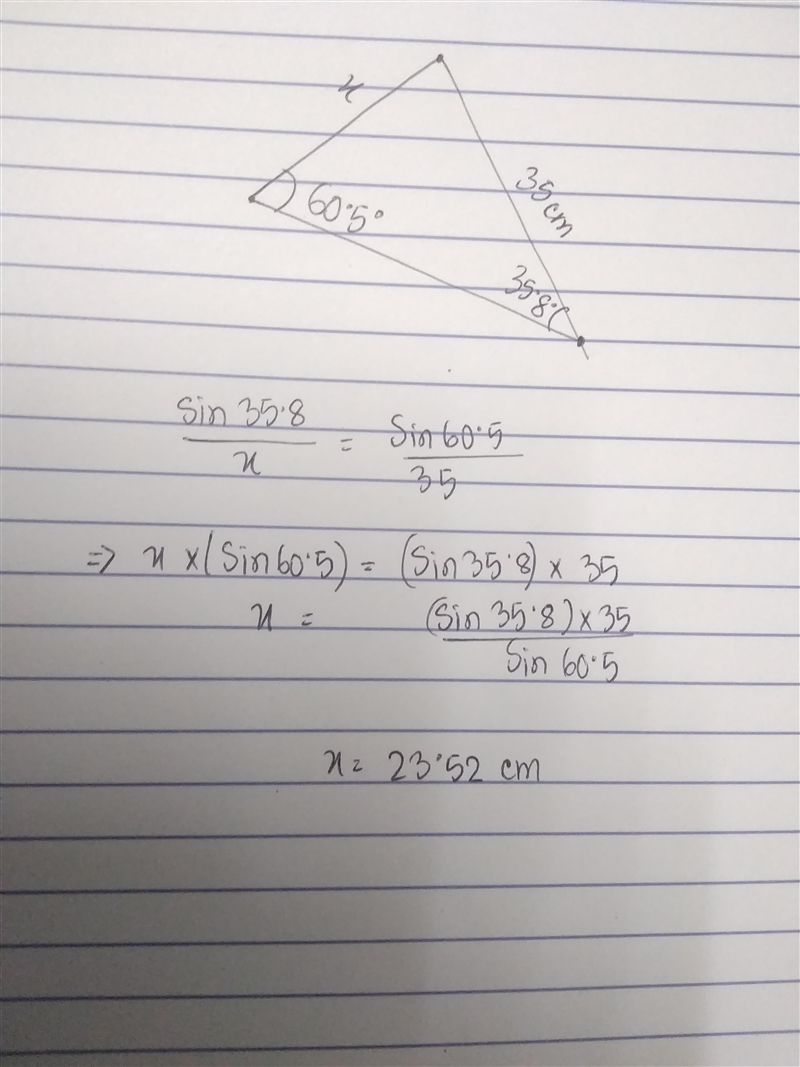 x
60.5°
35 cm
35.8°
Sin 35.8 / x = Sin 60.5 / 35
⇒ x × (Sin 60.5) = (Sin 35.8) × 35
x = (Sin 35.8) × 35 / Sin 60.5
x = 23.52 cm